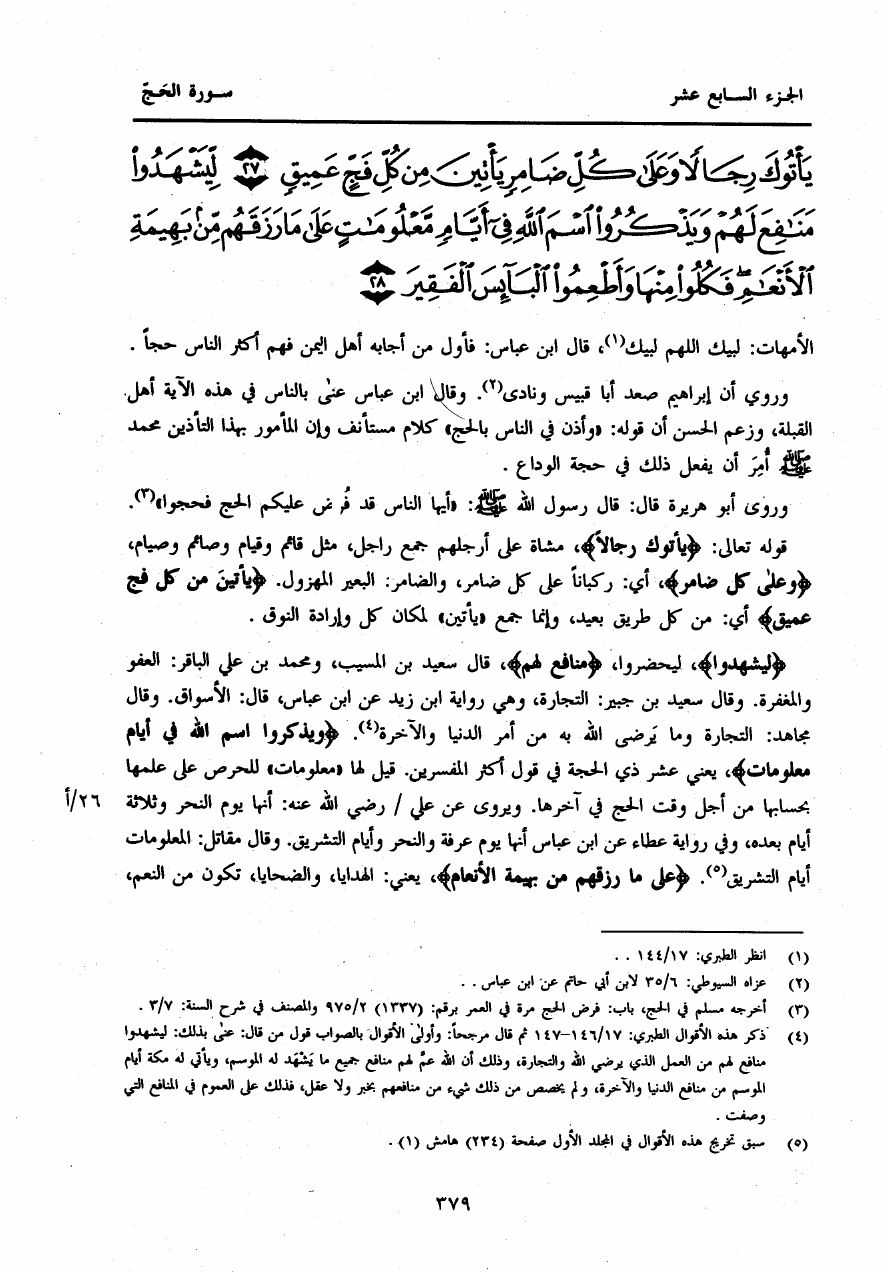 الجزء السابع عشر
سورة الحَجّ
يَأْتُوكَ رِجَالًا وَعَلَىٰ كُلِّ ضَامِرٍ يَأْتِينَ مِن كُلِّ فَجٍّ عَمِيقٍ ٢٧ لِّيَشْهَدُوا۟
مَنَـٰفِعَ لَهُمْ وَيَذْكُرُوا۟ ٱسْمَ ٱللَّهِ فِىٓ أَيَّامٍ مَّعْلُومَـٰتٍ عَلَىٰ مَا رَزَقَهُم مِّنۢ بَهِيمَةِ
ٱلْأَنْعَـٰمِ ۖ فَكُلُوا۟ مِنْهَا وَأَطْعِمُوا۟ ٱلْبَآئِسَ ٱلْفَقِيرَ ٢٨
الأمهات: لبيك اللهم لبيك(١)، قال ابن عباس: فأول من أجابه أهل اليمن فهم أكثر الناس حجاً .
وروي أن إبراهيم صعد أبا قبيس ونادى(٢). وقال ابن عباس عنىٰ بالناس في هذه الآية أهل
القبلة، وزعم الحسن أن قوله: «وأذن في الناس بالحج» كلام مستأنف وإن المأمور بهذا التأذين محمد
ﷺ أُمِرَ أن يفعل ذلك في حجة الوداع .
وروى أبو هريرة قال: قال رسول الله ﷺ: «أيها الناس قد فُرِض عليكم الحج فحجوا»(٣).
قوله تعالى: ﴿يأتوك رجالاً﴾، مشاة على أرجلهم جمع راجل، مثل قائم وقيام وصائم وصيام،
﴿وعلىٰ كل ضامر﴾، أي: ركباناً على كل ضامر، والضامر: البعير المهزول. ﴿يأتينَ من كل فج
عميق﴾ أي: من كل طريق بعيد، وإنما جمع «يأتين» لمكان كل وإرادة النوق .
﴿ليشهدوا﴾، ليحضروا، ﴿منافع لهم﴾، قال سعيد بن المسيب، ومحمد بن علي الباقر: العفو
والمغفرة. وقال سعيد بن جبير: التجارة، وهي رواية ابن زيد عن ابن عباس، قال: الأسواق. وقال
مجاهد: التجارة وما يَرضى الله به من أمر الدنيا والآخرة(٤). ﴿ويذكروا اسم الله في أيام
معلومات﴾، يعني عشر ذي الحجة في قول أكثر المفسرين. قيل لها «معلومات» للحرص على علمها
بحسابها من أجل وقت الحج في آخرها. ويروى عن علي / رضي الله عنه: أنها يوم النحر وثلاثة
٢٦/أ
أيام بعده، وفي رواية عطاء عن ابن عباس أنها يوم عرفة والنحر وأيام التشريق. وقال مقاتل: المعلومات
أيام التشريق(٥). ﴿على ما رزقهم من بهيمة الأنعام﴾، يعني: الهدايا، والضحايا، تكون من النعم،
(١) انظر الطبري: ١٤٤/١٧ . .
(٢) عزاه السيوطي: ٣٥/٦ لابن أبي حاتم عن ابن عباس . .
(٣) أخرجه مسلم في الحج، باب: فرض الحج مرة في العمر برقم: (١٣٣٧) ٩٧٥/٢ والمصنف في شرح السنة: ٣/٧ .
(٤) ذكر هذه الأقوال الطبري: ١٤٦/١٧-١٤٧ ثم قال مرجحاً: وأولى الأقوال بالصواب قول من قال: عنىٰ بذلك: ليشهدوا
منافع لهم من العمل الذي يرضي الله والتجارة، وذلك أن الله عمَّ لهم منافع جميع ما يَشْهَد له الموسم، ويأتي له مكة أيام
الموسم من منافع الدنيا والآخرة، ولم يخصص من ذلك شيء من منافعهم بخبر ولا عقل، فذلك على العموم في المنافع التي
وصفت .
(٥) سبق تخريج هذه الأقوال في المجلد الأول صفحة (٢٣٤) هامش (١) .
٣٧٩